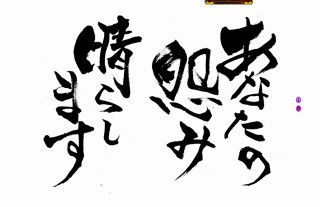 あなたの
怨み
晴らし
ます